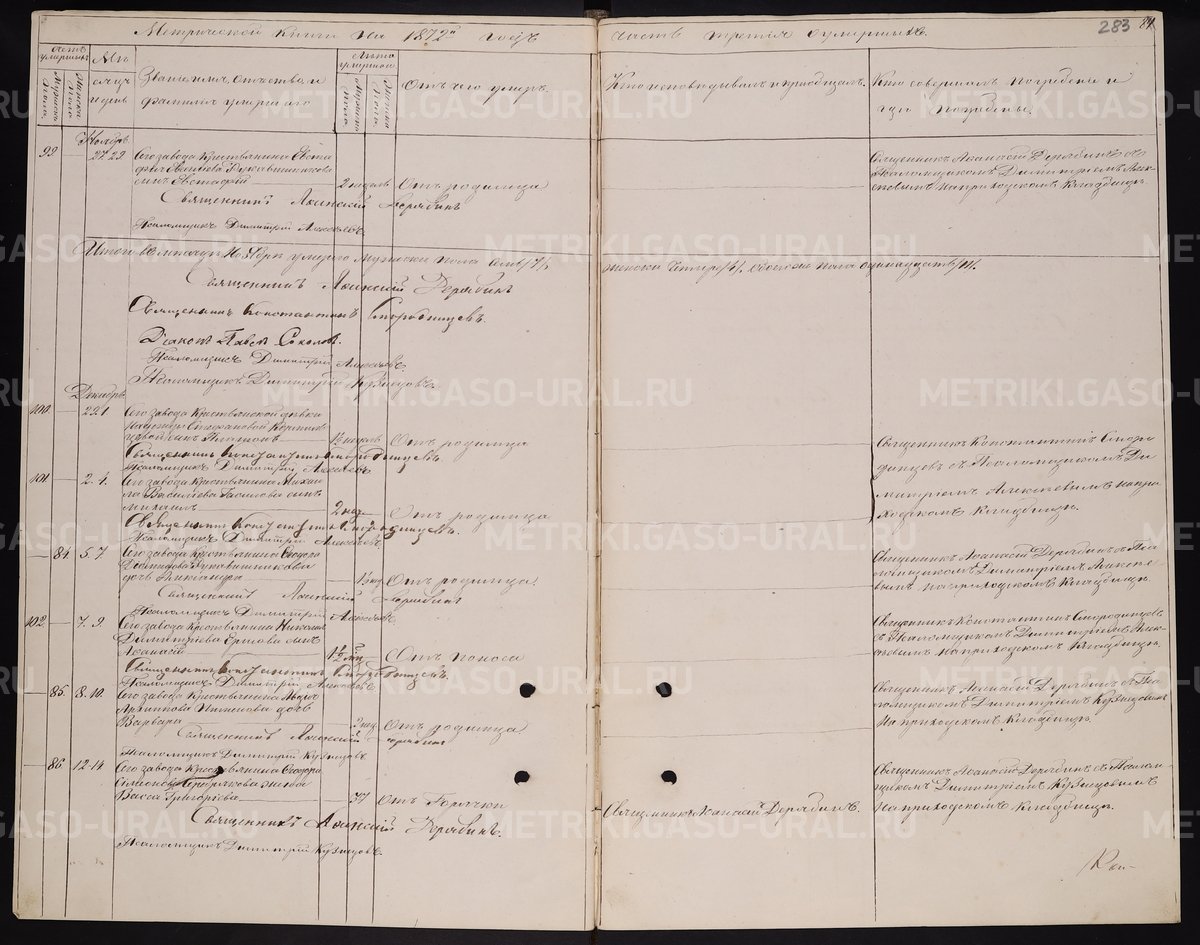 Метрической книги на 1872й годъ
часть третія о умершихъ.
283
84
Счетъ умершихъ
Мужеска пола.
Женска пола.
Мѣсяцъ и день
Званіе, имя, отчество и фамилія умершаго
Лѣта умершаго
Мужеска пола
Женска пола
Отъ чего умеръ.
Кто исповѣдывалъ и пріобщалъ.
Кто совершалъ погребеніе и гдѣ погребены.
Ноябрь
99 — 27 29 Сего завода Крестьянина Евста
сынъ Евстафій — 2 недѣль Отъ родимца
Священникъ Аѳанасій Дерябинъ съ
Псаломщикомъ Димитріемъ Алек-
сѣевымъ на приходскомъ кладбищѣ.
Священникъ Аѳанасій Дерябинъ
Псаломщикъ Димитрій Алексѣевъ
Итого въ мѣсяцѣ Ноябрѣ умерло мужеска пола семь /7/,
женска четыре /4/, обоего пола одинадцать /11/.
Священникъ Аѳанасій Дерябинъ
Священникъ Константинъ Смородинцевъ.
Діаконъ Павелъ Соколовъ.
Псаломщикъ Димитрій Алексѣевъ
Псаломщикъ Димитрій Кузнецовъ.
Декабрь
100 — 29 1 Сего завода Крестьянской дѣвки
сынъ Платонъ — недѣль Отъ родимца
Священникъ Константинъ Сморо-
динцевъ съ Псаломщикомъ Ди-
митріемъ Алексѣевымъ на при-
ходскомъ кладбищѣ.
Священникъ Константинъ Смородинцевъ.
Псаломщикъ Димитрій Алексѣевъ
101 — 2 4 Сего завода Крестьянина Михаи
ла Васильева сынъ
Михаилъ — 2 нед. Отъ родимца
Священникъ Константинъ Смородинцевъ.
Псаломщикъ Димитрій Алексѣевъ
— 84 5 7 Сего завода Крестьянина Ѳеодора
Рукавишникова
дочь Александра — Отъ родимца
Священникъ Аѳанасій Дерябинъ съ Пса
ломщикомъ Димитріемъ Алексѣе
вымъ на приходскомъ кладбищѣ.
Священникъ Аѳанасій Дерябинъ
Псаломщикъ Димитрій Алексѣевъ
102 — 7 9 Сего завода Крестьянина Николая
Димитріева Ершова сынъ
Аѳанасій — Отъ поноса
Священникъ Константинъ Смородинцевъ
съ Псаломщикомъ Димитріемъ Алек-
сѣевымъ на приходскомъ кладбищѣ.
Священникъ Константинъ Смородинцевъ
Псаломщикъ Димитрій Алексѣевъ
— 85 8 10 Сего завода Крестьянина
дочь
Варвара — Отъ родимца
Священникъ Аѳанасій Дерябинъ съ Пса
ломщикомъ Димитріемъ Кузнецовымъ
на приходскомъ кладбищѣ.
Священникъ Аѳанасій Дерябинъ
Псаломщикъ Димитрій Кузнецовъ
— 86 12 14 Сего завода Крестьянина Ѳеодора
жена
Васса Григорьева — 37 Отъ горячки
Священникъ Аѳанасій Дерябинъ.
Священникъ Аѳанасій Дерябинъ съ Псалом-
щикомъ Димитріемъ Кузнецовымъ
на приходскомъ кладбищѣ.
Священникъ Аѳанасій Дерябинъ.
Псаломщикъ Димитрій Кузнецовъ.
METRIKI.GASO-URAL.RU